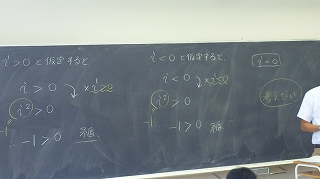 i>0 と仮定すると
i>0
×i>0
i²>0
-1
∴ -1>0 矛盾
i<0 と仮定すると
i<0
×i<0
i²>0
-1
∴ -1>0 矛盾
i=0